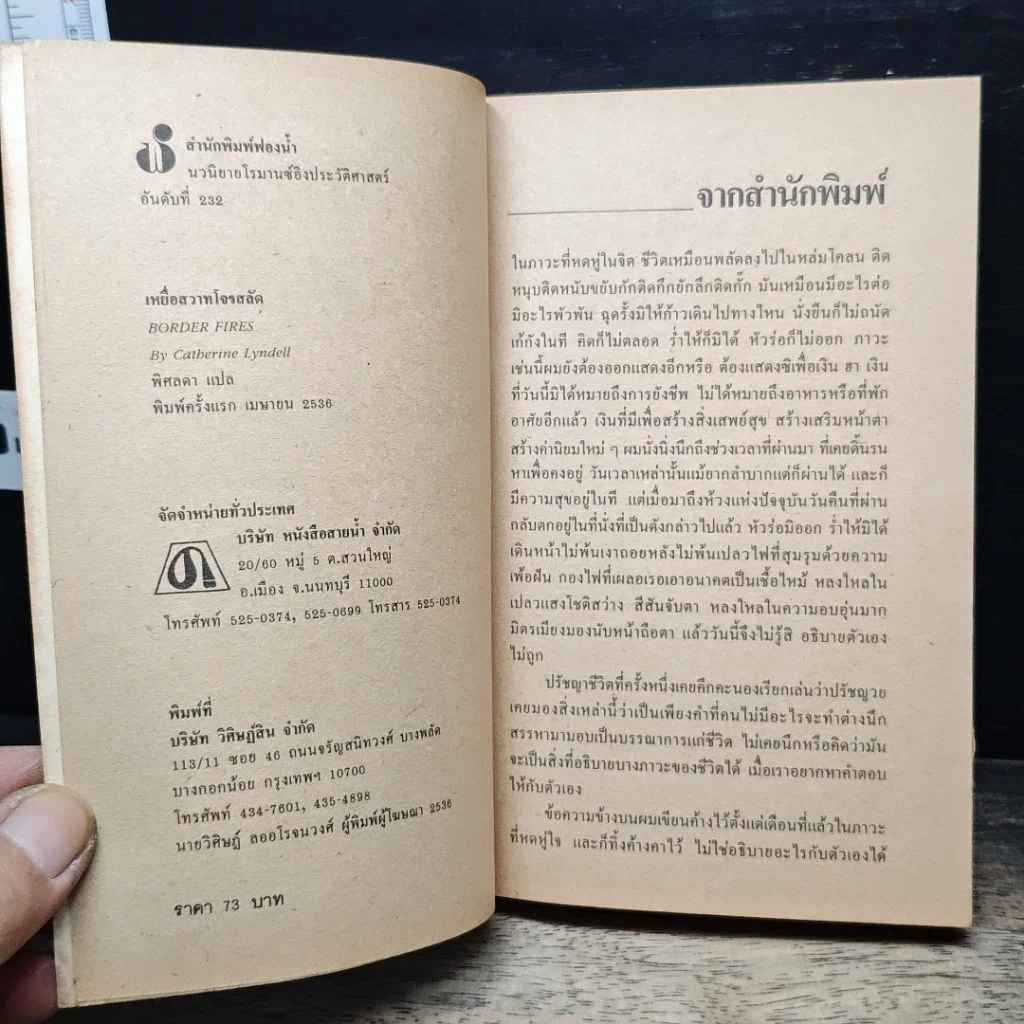 สำนักพิมพ์ฟองน้ำ
นวนิยายโรมานซ์อิงประวัติศาสตร์
อันดับที่ 232
เหยื่อสวาทโจรสลัด
BORDER FIRES
By Catherine Lyndell
พิศลดา แปล
พิมพ์ครั้งแรก เมษายน 2536
จัดจำหน่ายทั่วประเทศ
บริษัท หนังสือสายน้ำ จำกัด
20/60 หมู่ 5 ต.สวนใหญ่
อ.เมือง จ.นนทบุรี 11000
โทรศัพท์ 525-0374, 525-0699 โทรสาร 525-0374
พิมพ์ที่
บริษัท วิศิษฏ์สิน จำกัด
113/11 ซอย 46 ถนนจรัญสนิทวงศ์ บางพลัด
บางกอกน้อย กรุงเทพฯ 10700
โทรศัพท์ 434-7601, 435-4898
นายวิศิษฏ์ ลออโรจนวงศ์ ผู้พิมพ์ผู้โฆษณา 2536
ราคา 73 บาท
จากสำนักพิมพ์
ในภาวะที่หดหู่ในจิต ชีวิตเหมือนพลัดลงไปในหล่มโคลน ติด
หนุบติดหนับขยับกักติดกึกยักลึกติดกั๊ก มันเหมือนมีอะไรต่อ
มิอะไรพัวพัน ฉุดรั้งมิให้ก้าวเดินไปทางไหน นั่งยืนก็ไม่ถนัด
เก้กังในที คิดก็ไม่ตลอด ร่ำไห้ก็มิได้ หัวร่อก็ไม่ออก ภาวะ
เช่นนี้ผมยังต้องออกแสดงอีกหรือ ต้องแสดงซิเพื่อเงิน ฮา เงิน
ที่วันนี้มิได้หมายถึงการยังชีพ ไม่ได้หมายถึงอาหารหรือที่พัก
อาศัยอีกแล้ว เงินที่มีเพื่อสร้างสิ่งเสพย์สุข สร้างเสริมหน้าตา
สร้างค่านิยมใหม่ ๆ ผมนั่งนิ่งนึกถึงช่วงเวลาที่ผ่านมา ที่เคยดิ้นรน
หาเพื่อคงอยู่ วันเวลาเหล่านั้นแม้ยากลำบากแต่ก็ผ่านได้ และก็
มีความสุขอยู่ในที แต่เมื่อมาถึงห้วงแห่งปัจจุบันวันคืนที่ผ่าน
กลับตกอยู่ในที่นั่งที่เป็นดังกล่าวไปแล้ว หัวร่อมิออก ร่ำไห้มิได้
เดินหน้าไม่พ้นเงาถอยหลังไม่พ้นเปลวไฟที่สุมรุมด้วยความ
เพ้อฝัน กองไฟที่เผลอเรอเอาอนาคตเป็นเชื้อไหม้ หลงใหลใน
เปลวแสงโชติสว่าง สีสันจับตา หลงใหลในความอบอุ่นมาก
มิตรเมียงมองนับหน้าถือตา แล้ววันนี้จึงไม่รู้สิ อธิบายตัวเอง
ไม่ถูก
ปรัชญาชีวิตที่ครั้งหนึ่งเคยคึกคะนองเรียกเล่นว่าปรัชญวย
เคยมองสิ่งเหล่านี้ว่าเป็นเพียงคำที่คนไม่มีอะไรจะทำต่างนึก
สรรหามามอบเป็นบรรณาการแก่ชีวิต ไม่เคยนึกหรือคิดว่ามัน
จะเป็นสิ่งที่อธิบายบางภาวะของชีวิตได้ เมื่อเราอยากหาคำตอบ
ให้กับตัวเอง
ข้อความข้างบนผมเขียนค้างไว้ตั้งแต่เดือนที่แล้วในภาวะ
ที่หดหู่ใจ และก็ทิ้งค้างคาไว้ ไม่ใช่อธิบายอะไรกับตัวเองได้